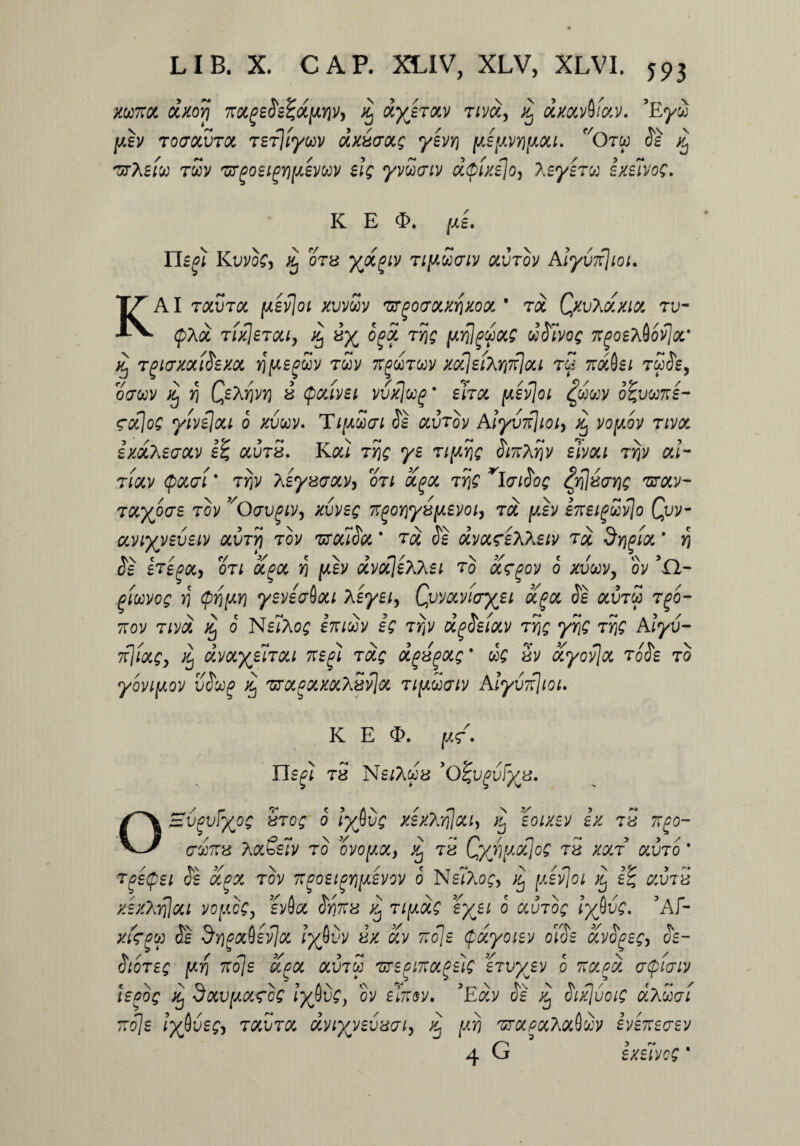 LIB. X. CAP. XLIV, XLV, XLVI. 593
κωπα ἀκοῇ παρεδεξάμην, ϗ ἀχέταν τινὰ, ϗ ἀκανθίαν. Ἐγὼ
μὲν τοσαῦτα τετ]ίγων ἀκȣ́σας γένη μέμνημαι. Ὅτῳ δὲ ϗ
πλείω τῶν προειρημένων εἰς γνῶσιν ἀφίκε]ο, λεγέτω ἐκεῖνος.
Κ Ε Φ. μέ.
Περὶ Κυνὸς, ϗ ὅτȣ χάριν τιμῶσιν αὐτὸν Αἰγύπ]ιοι.
ΚΑΙ ταῦτα μέν]οι κυνῶν προσακήκοα· τὰ ϛκυλάκια τυ-
φλὰ τίκ]εται, ϗ ȣ̓χ ὁρᾷ τῆς μη]ρῴας ὠδῖνος προελθόν]α·
ϗ τρισκαίδεκα ἡμερῶν τῶν πρώτων κα]είληπ]αι τῷ πάθει τῷδε,
ὅσων ϗ ἡ ϛελήνη ȣ̓ φαίνει νύκ]ωρ· εἶτα μέν]οι ζώων ὀξυωπέ-
ϛα]ος γίνε]αι ὁ κύων. Τιμῶσι δὲ αὐτὸν Αἰγύπ]ιοι, ϗ νομόν τινα
ἐκάλεσαν ἐξ αὐτȣ͂. Καὶ τῆς γε τιμῆς διπλῆν εἶναι τὴν αἰ-
τίαν φασί· τὴν λέγȣσαν, ὅτι ἄρα τῆς Ἴσιδος ζη]ȣ́σης παν-
ταχόσε τὸν Ὄσυριν, κύνες προηγȣ́μενοι, τὰ μὲν ἐπειρῶν]ο ϛυν-
ανιχνεύειν αὐτῇ τὸν παῖδα· τὰ δὲ ἀναϛέλλειν τὰ θηρία· ἡ
δὲ ἑτέρα, ὅτι ἄρα ἡ μὲν ἀνα]έλλει τὸ ἄϛρον ὁ κύων, ὃν Ὠ-
ρίωνος ἡ φήμη γενέσθαι λέγει, ϛυνανίσχει ἄρα δὲ αὐτῷ τρό-
πον τινὰ ϗ ὁ Νεῖλος ἐπιὼν ἐς τὴν ἀρδείαν τῆς γῆς τῆς Αἰγυ-
π]ίας, ϗ ἀναχεῖται περὶ τὰς ἀρȣ́ρας· ὡς ȣ̓͂ν ἄγον]α τόδε τὸ
γόνιμον ὕδωρ ϗ παρακαλȣ͂ν]α τιμῶσιν Αἰγύπ]ιοι.
Κ Ε Φ. μϛ΄.
Περὶ τȣ͂ Νειλώȣ Ὀξυρύγχȣ.
ΟΞύρυγχος ȣ̔͂τος ὁ ἰχθὺς κέκλη]αι, ϗ ἔοικεν ἐκ τȣ͂ προ-
σώπȣ λαβεῖν τὸ ὄνομα, ϗ τȣ͂ ϛχήμα]ος τȣ͂ κατ᾽ αὐτό·
τρέφει δὲ ἄρα τὸν προειρημένον ὁ Νεῖλος, ϗ μέν]οι ϗ ἐξ αὐτȣ͂
κέκλη]αι νομὸς, ἔνθα δήπȣ ϗ τιμὰς ἔχει ὁ αὐτὸς ἰχθύς. Ἀγ-
κίϛρῳ δὲ θηραθέν]α ἰχθὺν ȣ̓κ ἄν πο]ε φάγοιεν οἵδε ἄνδρες, δε-
διότες μή πο]ε ἄρα αὐτῷ περιπαρεὶς ἔτυχεν ὁ παρὰ σφίσιν
ἱερὸς ϗ θαυμαϛὸς ἰχθὺς, ὃν εἶπον. Ἐὰν δὲ ϗ δικ]ύοις ἁλῶσί
πο]ε ἰχθύες, ταῦτα ἀνιχνεύȣσι, ϗ μὴ παραλαθὼν ἐνέπεσεν
4 G ἐκεῖνος·